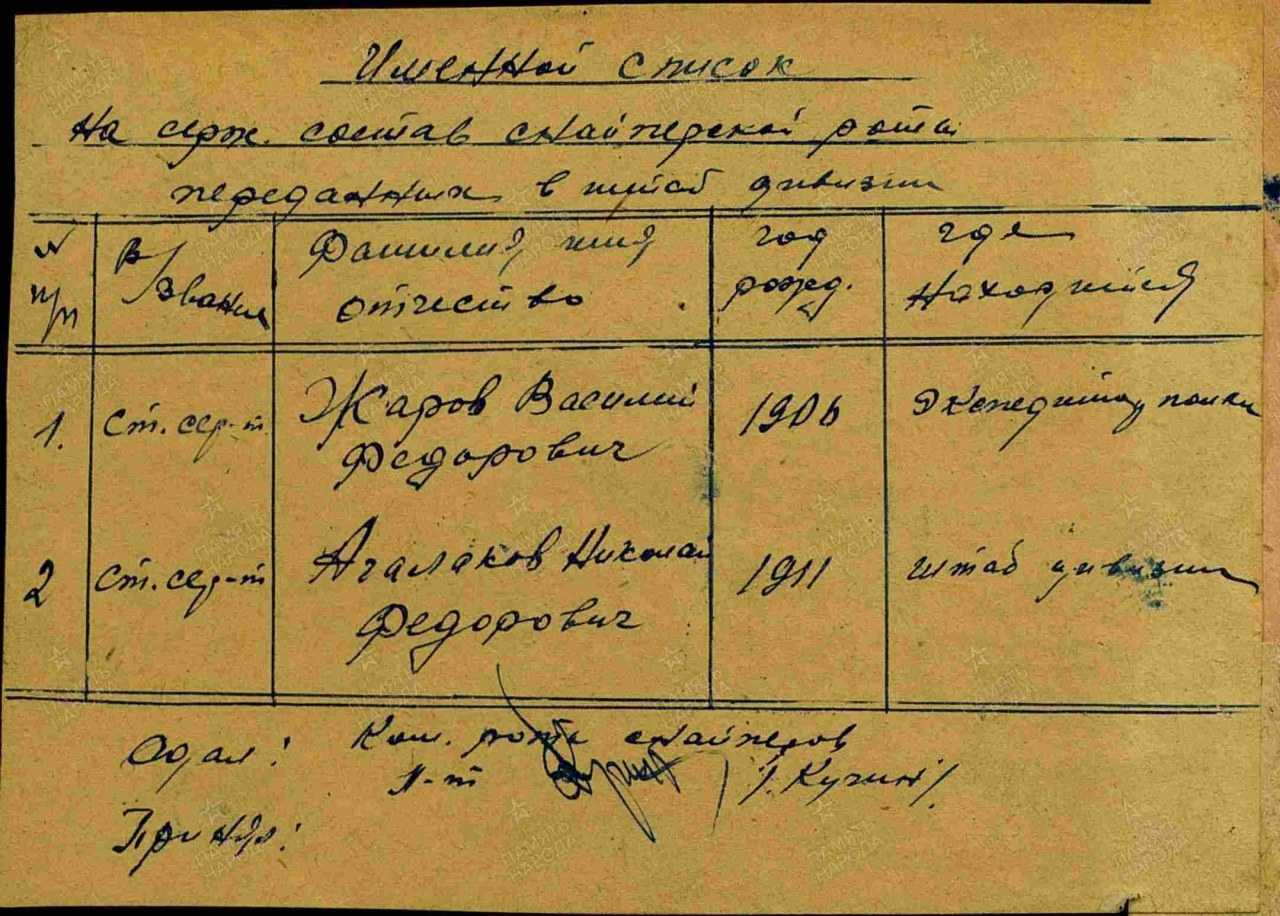 Именной список
На серж. состав снайперской роты
переданных в штаб дивизии
№ п/п
в/звание
Фамилия, имя отчество
год рожд.
где находится
1.
Ст. сер-т
Жаров Василий
Федорович
1906
Экспедитор
2
Ст. сер-т
Агалаков Николай
Федорович
1911
штаб дивизии
Сдал: Ком. роты снайперов
Л-т /Кучин/
Принял:
ПАМЯТЬ НАРОДА